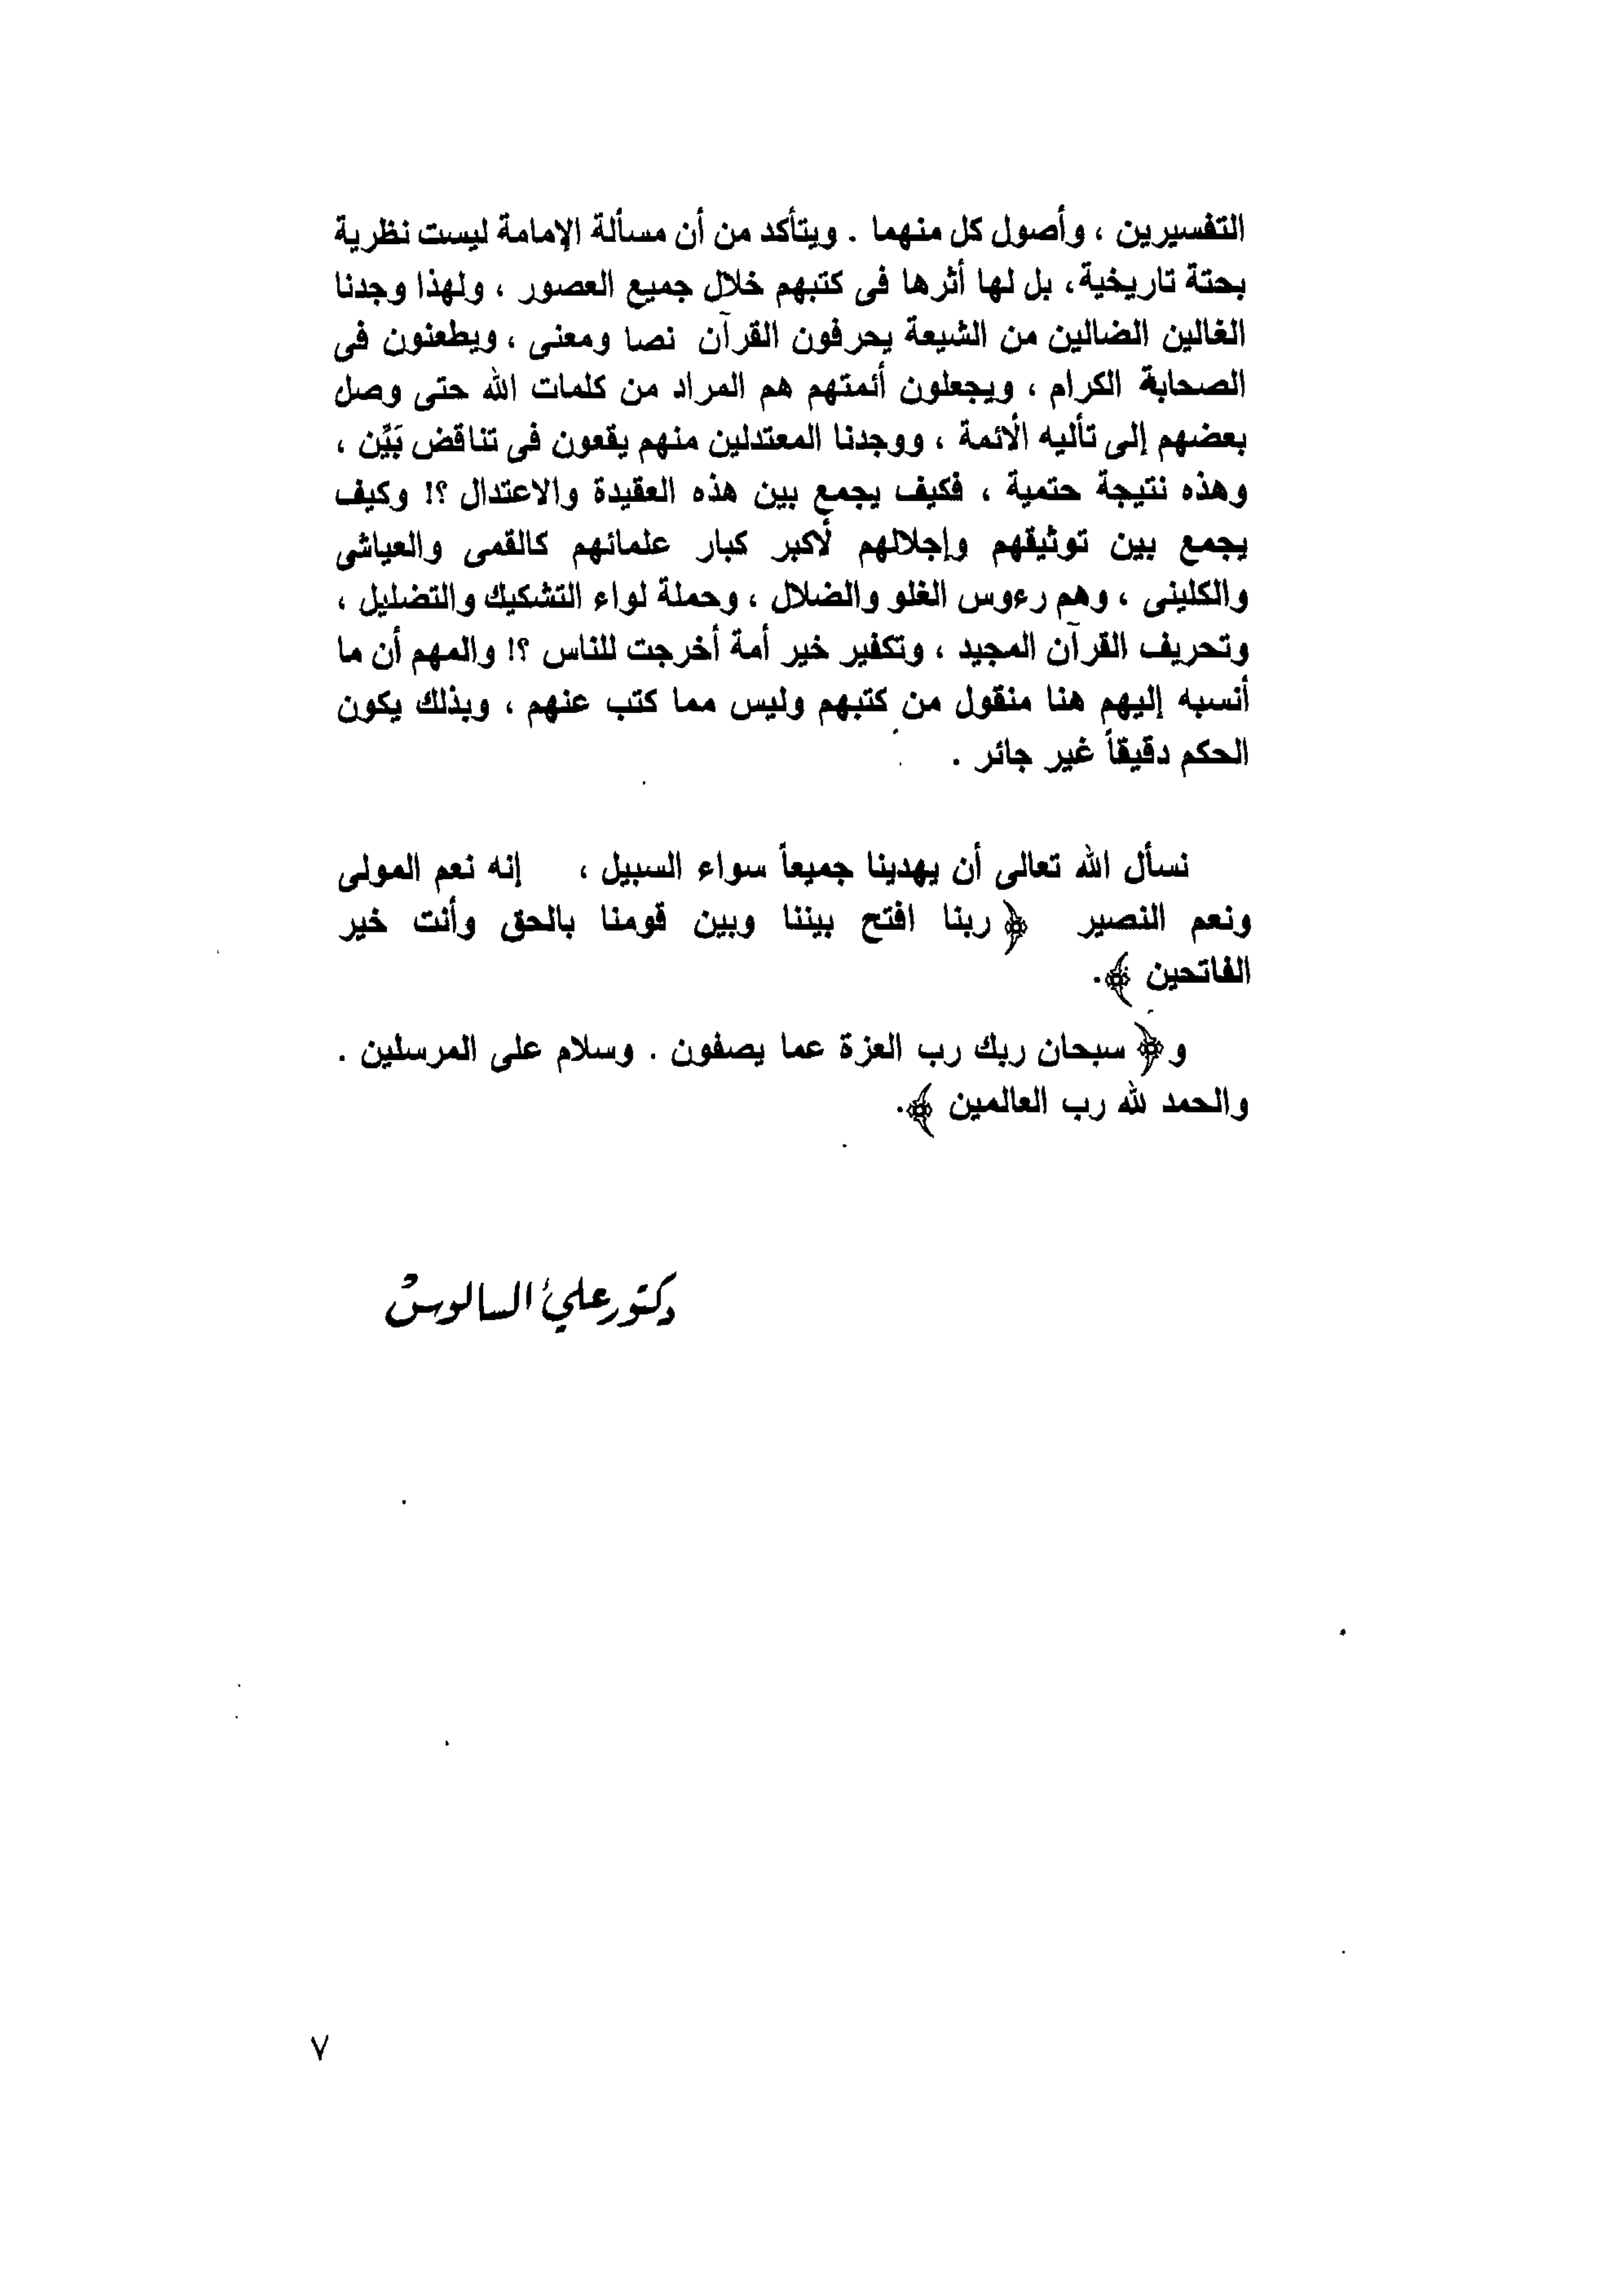 التفسيرين ، وأصول كل منهما . ويتأكد من أن مسألة الإمامة ليست نظرية
بحتة تاريخية، بل لها أثرها فى كتبهم خلال جميع العصور ، ولهذا وجدنا
الغالين الضالين من الشيعة يحرفون القرآن نصا ومعنى ، ويطعنون فى
الصحابة الكرام ، ويجعلون أئمتهم هم المراد من كلمات الله حتى وصل
بعضهم إلى تأليه الأئمة ، ووجدنا المعتدلين منهم يقعون فى تناقض بَيِّن ،
وهذه نتيجة حتمية ، فكيف يجمع بين هذه العقيدة والاعتدال ؟! وكيف
يجمع بين توثيقهم وإجلالهم لأكبر كبار علمائهم كالقمى والعياشى
والكلينى ، وهم رءوس الغلو والضلال ، وحملة لواء التشكيك والتضليل ،
وتحريف القرآن المجيد ، وتكفير خير أمة أخرجت للناس ؟! والمهم أن ما
أنسبه إليهم هنا منقول من كتبهم وليس مما كتب عنهم ، وبذلك يكون
الحكم دقيقاً غير جائر .
نسأل الله تعالى أن يهدينا جميعاً سواء السبيل ، إنه نعم المولى
ونعم النصير ﴿ ربنا افتح بيننا وبين قومنا بالحق وأنت خير
الفاتحين ﴾.
و﴿ سبحان ربك رب العزة عما يصفون . وسلام على المرسلين .
والحمد لله رب العالمين ﴾.
دكتور علي السالوس
٧